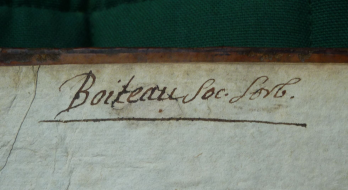 Boiteau Soc. Sorb.